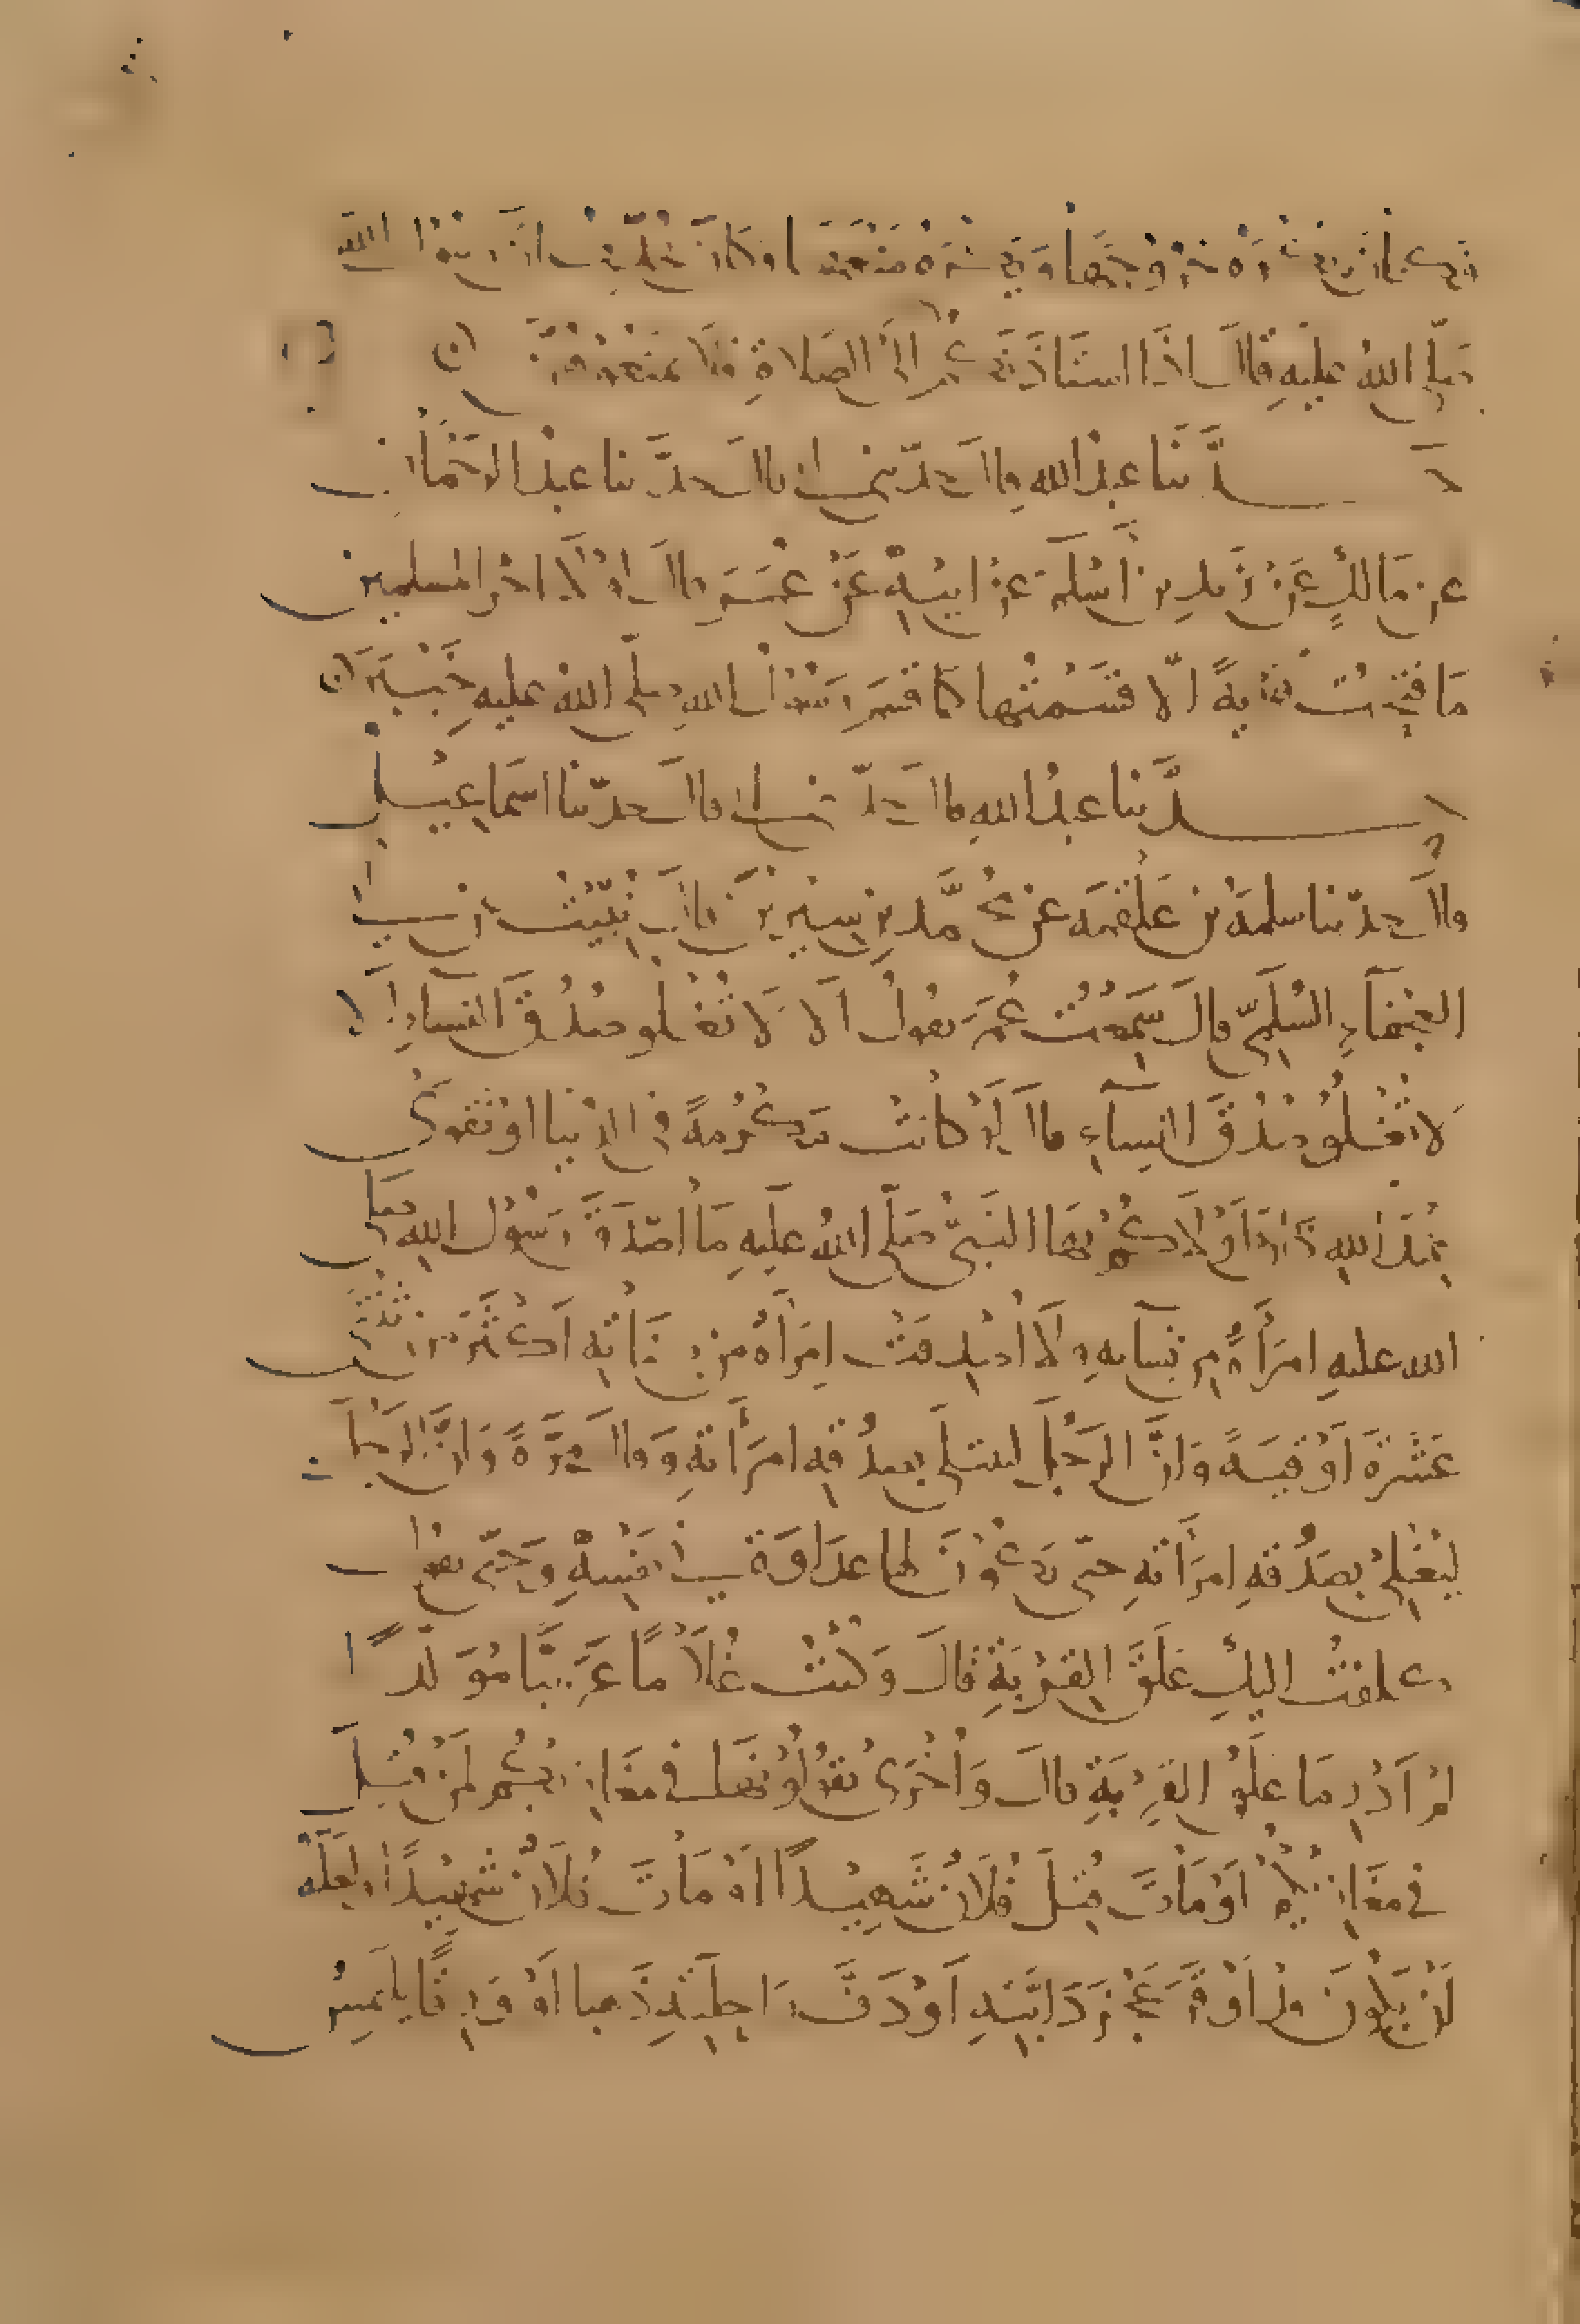 فكان يكره خروجها ويكره منعها وكان يحدث ان رسول الله
صلى الله عليه قال اذا استأذنكم الى الصلاة فلا تمنعوهن
حدَّثنا عبد الله قال حدّثني ابي قال حدَّثنا عبد الرحمان
عن مالكٍ عَن زَيد بن أَسْلَم عن ابيهِ عَنْ عُمَرَ قال لولا اخر المسلمين
مَا فتحت قرية الّا قسمتُها كما قسم رسول الله صلّى الله عليه خَيْبَرَ
حدَّثنا عبدُ الله قال حدّثني ابي قال حدّثنا اسماعيل
قال حدّثنا سلمة بن عَلْقمه عن محمَّد بن سيرين قالَ نبّيت عن ابي
العجفاء السُلَمِيّ قال سَمِعْت عُمَر يقول اَلا لا تُغْلو صُدُقَ النساء اَلا
لا تُغْلُو صُدُقَ النِساءِ قال لو كانت مكرُمةً في الدنيا او تقوى
عندَ الله كان اَوْلاكم بهَا النَبيُّ صَلّى اللهُ عليهِ مَا اَصدَقَ رَسُول الله صلى
الله عليه امرَأةً من نسايه ولا اُصدِقَت امرَأةٌ من بناته اكثر من ثنتى
عَشْرَةَ اَوْقيةً وَانَّ الرَجُلَ ليبتلى بصدُقه امرَأته وَقال مرَّةً وَانَّ الرجل
ليُغْلي بصَدُقه امرَأته حتى تكُونَ لها عداوَة في نَفْسهِ وَحَتّى يقول
كلفتُ اليكِ عَلَقَ القِرْبَةِ قال وَكُنْت غُلَامًا عَرَبيًّا مُوَلَّدًا
لم اَدْرِ مَا عَلَقُ القِرْبَةِ قال وَاُخْرَى تقولونهَا في مغازيكم لمن قُتِلَ
في مغازيكم اَوْ مَاتَ قُتِلَ فُلَانٌ شَهِيدًا اَوْ مَاتَ فُلانٌ شهيدًا ولعلّه
اَنْ يكونَ قد اَوْقَرَ عَجُزَ دَابَّتِهِ اَوْ دَفَّ رَاحِلَتِهِ ذَهبا اَوْ وَرِقًا يلتمِسُ